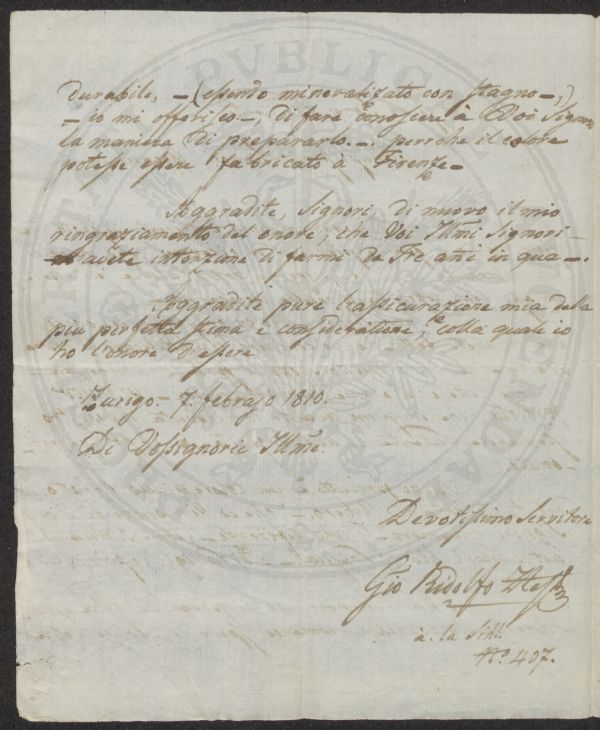 durabile, -(essendo mineralizato con stagno-,)
- io mi offerisco-, di fare conoscere à Voi Signori
la maniera di prepararlo.-. perrche il colore
potesse essere fabricato à Firenze-
Aggradite, Signori, di nuovo il mio
ringraziamento del onore, che Voi Illmi Signori-
avete intenzione di farmi da Tre añi in qua-.
Aggradite pure l'assicurazione mia dela
più perfetta stima e consideratione, colla quale io
ho l'onore d'essere
Zurigo. 7. febrajo 1810.
Di Vossignorie Illme.
Devotissimo Servitore
Gio Ridolfo Hess
à. la Sihl.
No. 407.